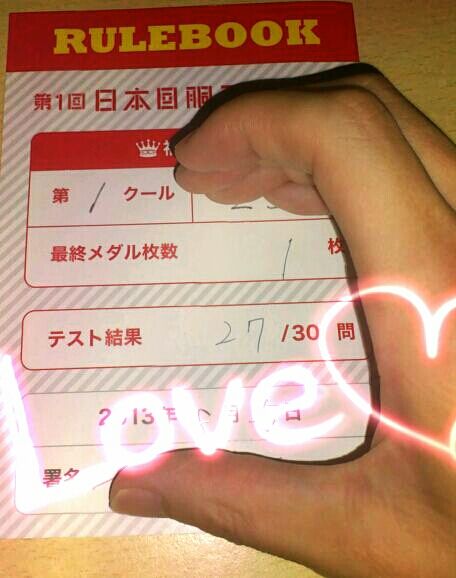 RULEBOOK
第1回 日本回胴
第 1 クール
最終メダル枚数 1 枚
テスト結果 27 /30 問
2013年 月 日
署名
Love